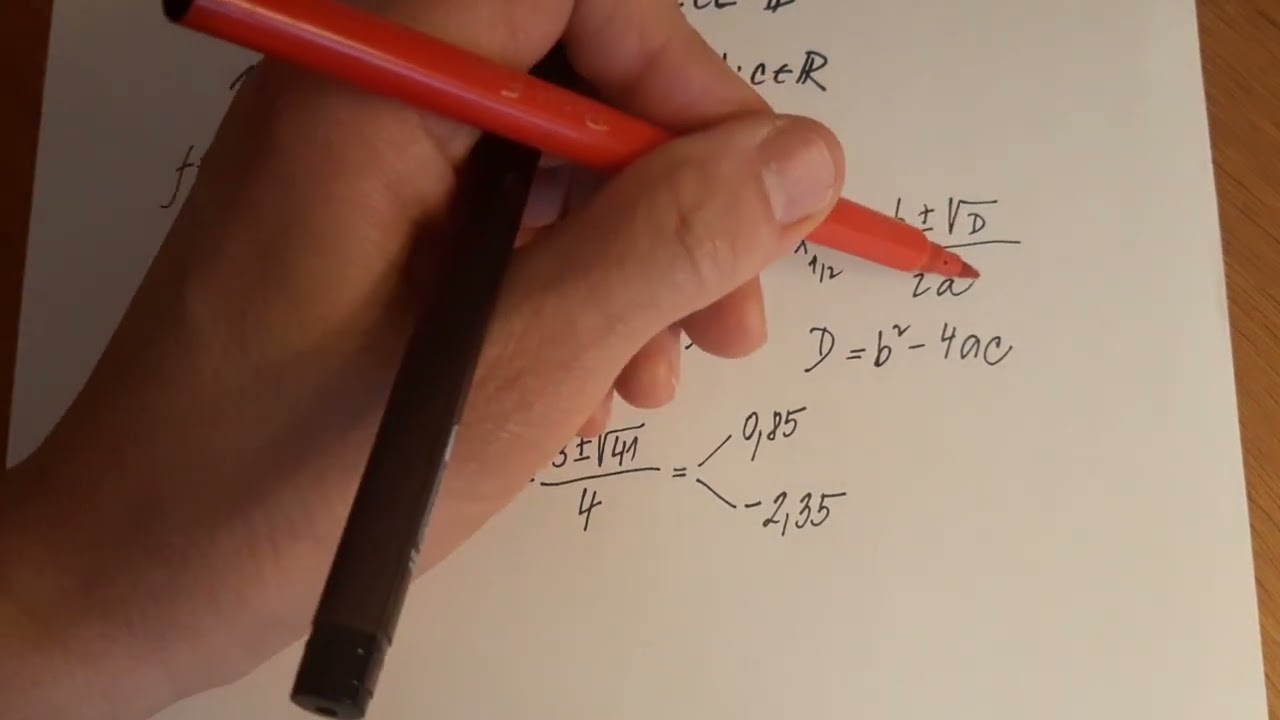 ; c ∈ ℝ
± √D
1/2
2a
D = b² - 4ac
3 ± √41
4
= 0,85
-2,35